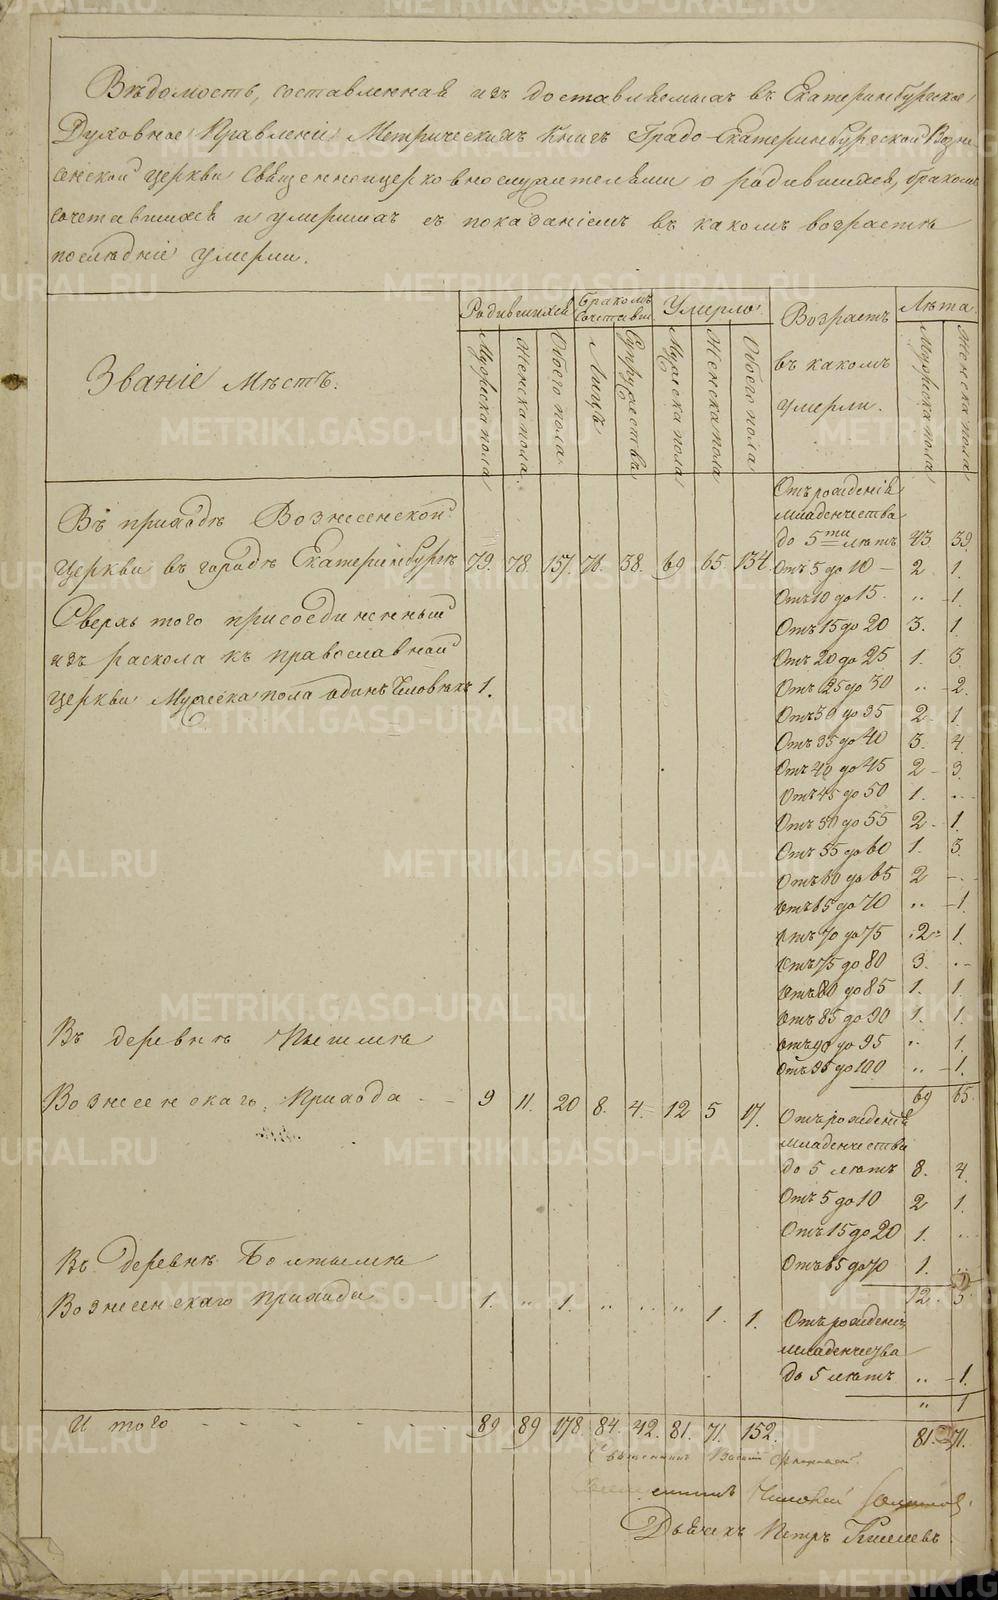 Вѣдомость, составленная изъ доставляемыхъ въ Екатеринбургское
Духовное Правленіе Метрическихъ Книгъ Градо-Екатеринбургской Возне
сенской церкви Священноцерковнослужителями о родившихся, бракомъ
сочетавшихся и умершихъ съ показаніемъ въ какомъ возрастѣ
послѣдніе умерли.
Званіе Мѣстъ.
Родившихся
Бракомъ Сочетавш.
Умерло.
Возрастъ въ какомъ умерли.
Лѣта
Мужеска пола
Женска пола.
Обоего пола.
Лицъ
Супружествъ
Мужеска пола
Женска пола
Обоего пола
Мужеска пола
Женска пола
Въ приходѣ Вознесенской
церкви въ городѣ Екатеринбургѣ 79. 78. 157. 76. 38. 69 65. 134.
Сверхъ того присоединенный
изъ раскола къ православной
церкви Мужеска пола одинъ Человѣкъ 1.
Отъ рожденія
младенчества
до 5ти лѣтъ 43. 39.
Отъ 5 до 10 – 2 1.
Отъ 10 до 15. „ 1.
Отъ 15 до 20 3. 1
Отъ 20 до 25 1. 3.
Отъ 25 до 30 „ 2.
Отъ 30 до 35 2 1.
Отъ 35 до 40 3. 4.
Отъ 40 до 45 2 3.
Отъ 45 до 50 1. „
Отъ 50 до 55 2 1.
Отъ 55 до 60 1. 3.
Отъ 60 до 65 2 „
Отъ 65 до 70 „ 1.
Отъ 70 до 75 2 1.
Отъ 75 до 80 3. „
Отъ 80 до 85 1. 1.
Отъ 85 до 90 1. 1.
Отъ 90 до 95 „ 1.
Отъ 95 до 100 „ 1.
69 65.
Въ деревнѣ Пышмѣ
Вознесенскаго Прихода 9 11. 20 8. 4. 12 5 17.
Отъ рожденія
младенчества
до 5 лѣтъ 8. 4.
Отъ 5 до 10 2 1.
Отъ 15 до 20 1. „
Отъ 65 до 70 1. „
12. 5
Въ деревнѣ Болтымкѣ
Вознесенскаго Прихода 1. „ 1. „ „ „ 1. 1.
Отъ рожденія
младенчества
до 5 лѣтъ „ 1.
„ 1
И того 89 89 178. 84. 42. 81. 71. 152. 81. 71.
Священникъ
Дьячекъ Петръ Киселевъ
METRIKI.GASO-URAL.RU